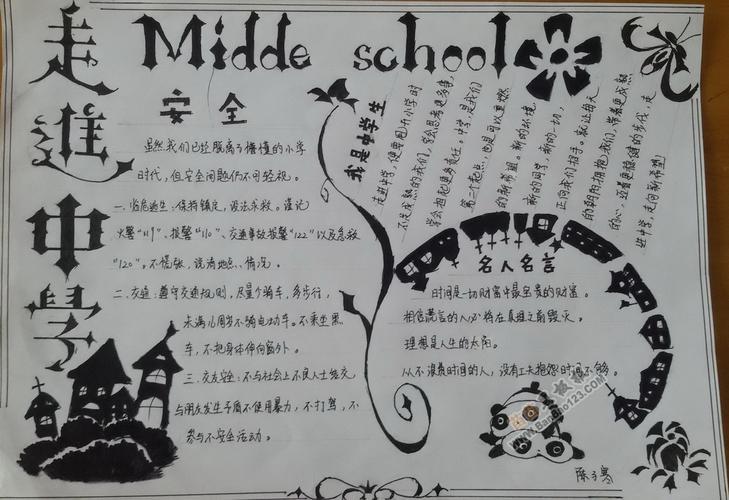 走進中学
Midde school
安全
虽然我们已经脱离了懵懂的小学
时代,但安全问题仍不可轻视。
一、临危逃生:保持镇定,设法求救。谨记
火警“119”、报警“110”、交通事故报警“122”以及急救
“120”。不慌张,说清地点、情况。
二、交通:遵守交通规则,尽量个骑车,多步行,
未满16周岁不骑电动车。不乘坐黑
车,不把身体伸向窗外。
三、交友安全:不与社会上不良人士结交
与朋友发生矛盾不使用暴力,不打骂,不
参与不安全活动。
我是中学生
走进中学,便要图别小学时
不失成熟的我们,学会思考更多事,
学会担起更多责任。中学,是我们
第二个起点,也是可以更燃
的新希望。新的环境,
新的同学,新的一切,
正向我们招手。就让每天
的朝阳拥抱我们,带着更成熟
的心,迈着更稳健的步伐,走
进中学,走向新希望
名人名言
时间是一切财富中最宝贵的财富。
相信谎言的人必将在真理之前毁灭。
理想是人生的太阳。
从不浪费时间的人,没有工夫抱怨时间不够。
板报
www.Banbao123.com